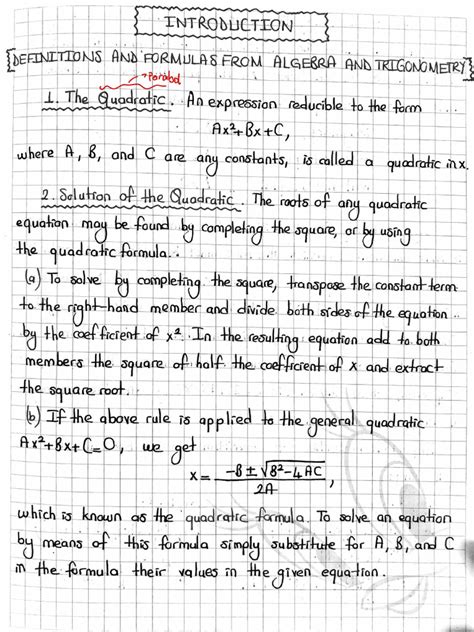 INTRODUCTION
DEFINITIONS AND FORMULAS FROM ALGEBRA AND TRIGONOMETRY
Parabol
1. The Quadratic. An expression reducible to the form
Ax²+Bx+C,
where A, B, and C are any constants, is called a quadratic in x.
2. Solution of the Quadratic. The roots of any quadratic
equation may be found by completing the square, or by using
the quadratic formula.
(a) To solve by completing the square, transpose the constant term
to the right-hand member and divide both sides of the equation
by the coefficient of x². In the resulting equation add to both
members the square of half the coefficient of x and extract
the square root.
(b) If the above rule is applied to the general quadratic
Ax²+Bx+C=0, we get
x = -B ± √B²-4AC / 2A,
which is known as the quadratic formula. To solve an equation
by means of this formula simply substitute for A, B, and C
in the formula their values in the given equation.